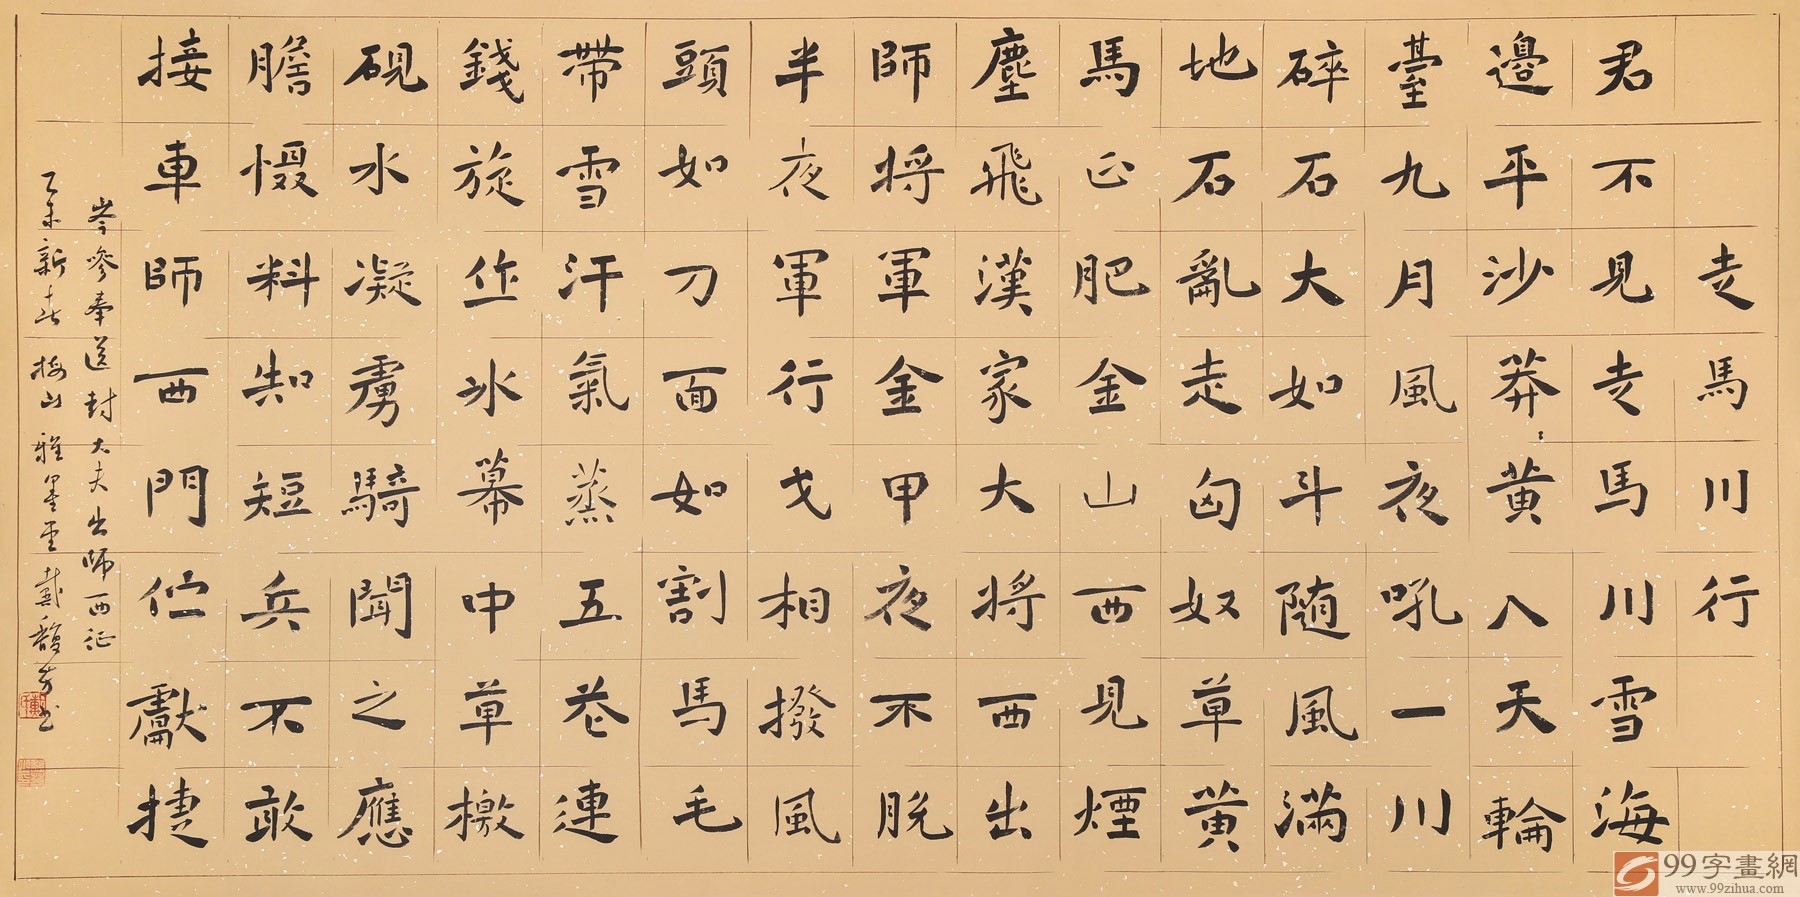 走馬川行
君不見走馬川雪海
邊平沙莽〻黄入天輪
臺九月風夜吼一川
碎石大如斗随風滿
地石亂走匈奴草黄
馬正肥金山西見煙
塵飛漢家大将西出
師将軍金甲夜不脱
半夜軍行戈相撥風
頭如刀面如割馬毛
帶雪汗氣蒸五花連
錢旋作冰幕中草檄
硯水凝虜騎聞之應
膽慑料知短兵不敢
接車師西門伫獻捷
岑參奉送封大夫出師西征
乙未新春 梅山雅墨堂戴馥芳书
99字畫網
www.99zihua.com